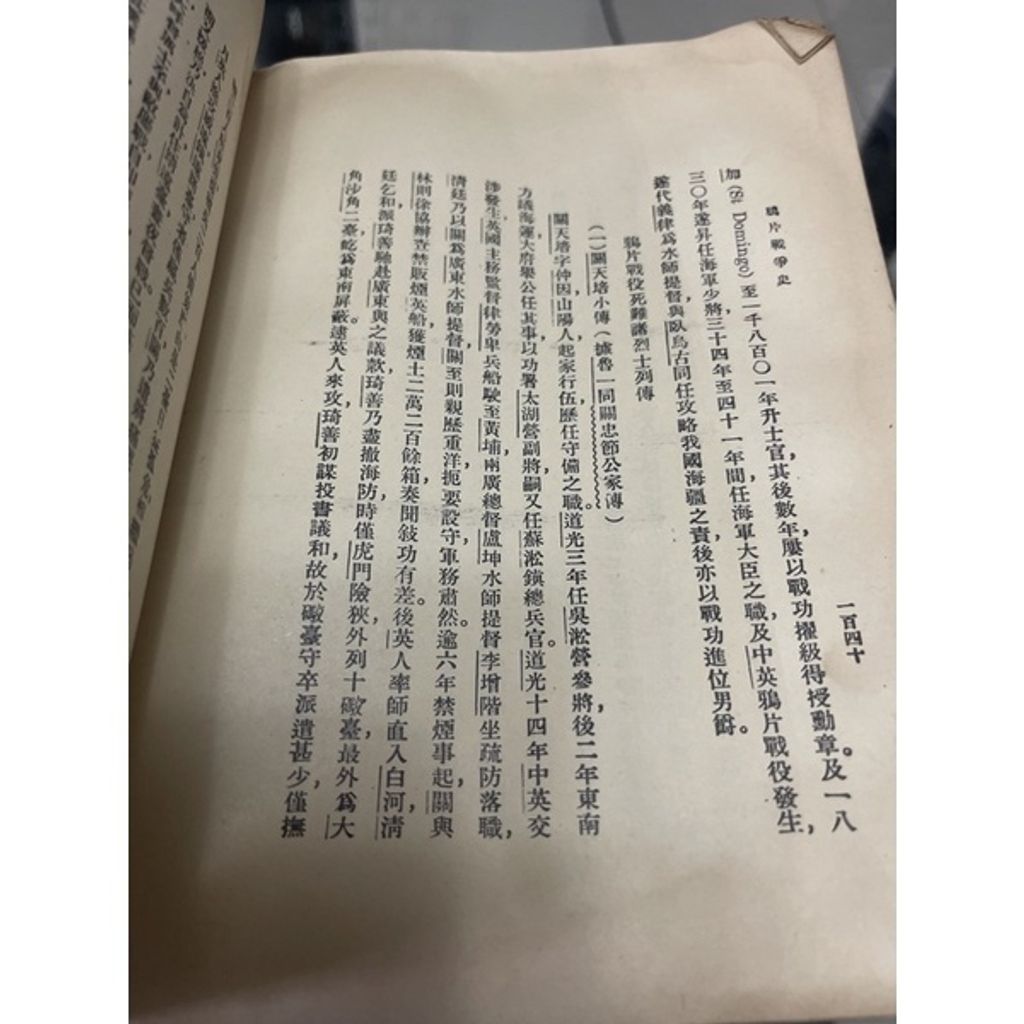 鴉片戰爭史
一百四十
加(St Domingo)至一千八百〇一年升士官，其後數年，屢以戰功擢級得授勳章。及一八
三〇年遂昇任海軍少將三十四年至四十一年間任海軍大臣之職，及中英鴉片戰役發生，
遂代義律爲水師提督與臥烏古同任攻略我國海疆之責後亦以戰功進位男爵。
鴉片戰役死難諸烈士列傳
(一)關天培小傳(據魯一同關忠節公家傳)
關天培字仲因山陽人，起家行伍歷任守備之職。道光三年任吳淞營參將，後二年東南
方議海運大府舉公任其事以功署太湖營副將嗣又任蘇淞鎮總兵官。道光十四年中英交
涉發生英國主務監督律勞卑兵船駛至黃埔兩廣總督盧坤水師提督李增階坐疏防落職，
淸廷乃以關爲廣東水師提督關至則親歷重洋扼要設守軍務肅然。逾六年禁煙事起，關與
林則徐協辦查禁販煙英船獲煙土二萬二百餘箱奏聞敍功有差。後英人率師直入白河，淸
廷乞和派琦善馳赴廣東與之議款琦善乃盡撤海防時僅虎門險狹外列十礮臺，最外爲大
角沙角二臺屹爲東南屏蔽。逮英人來攻琦善初謀投書議和故於礮臺守卒派遣甚少，僅撫